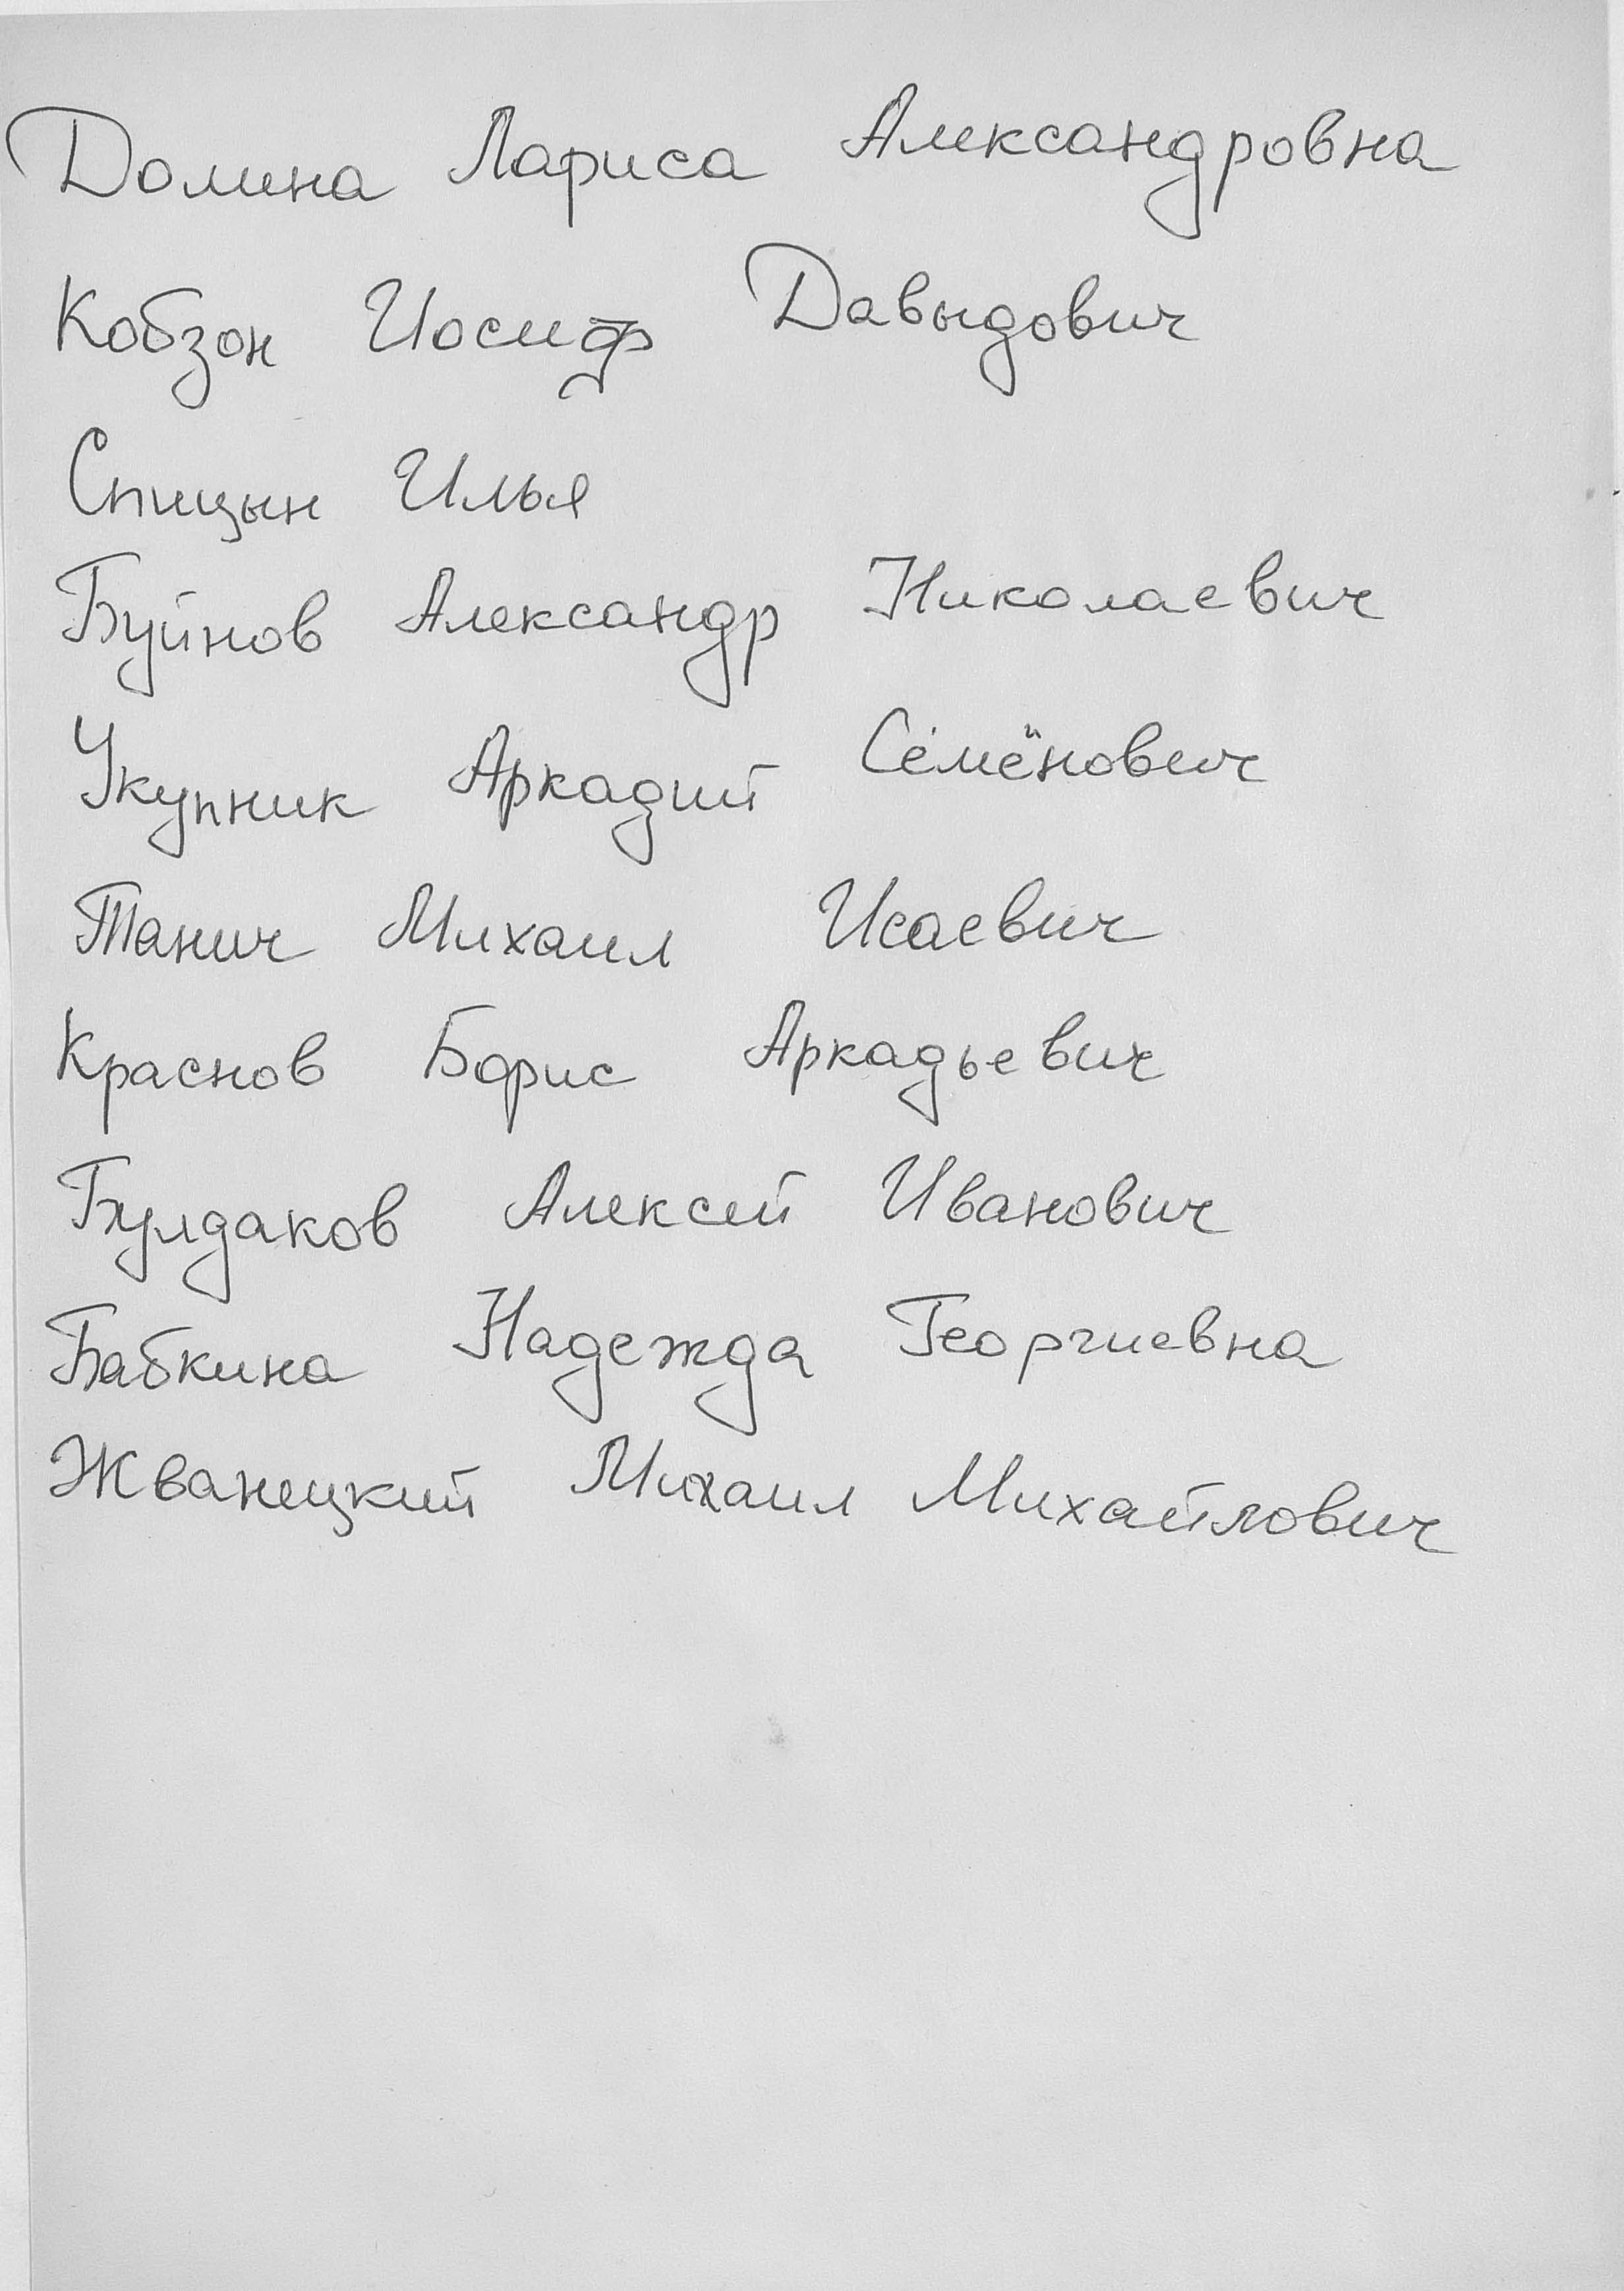 Долина Лариса Александровна
Кобзон Иосиф Давыдович
Спицын Илья
Буйнов Александр Николаевич
Укупник Аркадий Семёнович
Танич Михаил Исаевич
Краснов Борис Аркадьевич
Булдаков Алексей Иванович
Бабкина Надежда Георгиевна
Жванецкий Михаил Михайлович